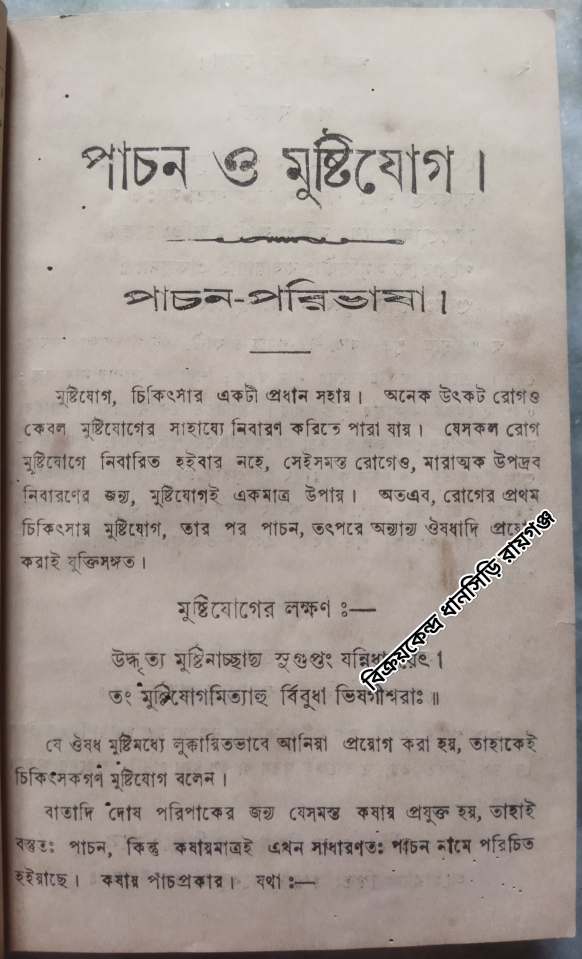 পাচন ও মুষ্টিযোগ।
পাচন-পরিভাষা।
মুষ্টিযোগ, চিকিৎসার একটী প্রধান সহায়। অনেক উৎকট রোগও
কেবল মুষ্টিযোগের সাহায্যে নিবারণ করিতে পারা যায়। যেসকল রোগ
মুষ্টিযোগে নিবারিত হইবার নহে, সেইসমস্ত রোগেও, মারাত্মক উপদ্রব
নিবারণের জন্য, মুষ্টিযোগই একমাত্র উপায়। অতএব, রোগের প্রথম
চিকিৎসায় মুষ্টিযোগ, তার পর পাচন, তৎপরে অন্যান্য ঔষধাদি
করাই যুক্তিসঙ্গত।
মুষ্টিযোগের লক্ষণ ঃ—
উদ্ধৃত্য মুষ্টিনাচ্ছাদ্য সুগুপ্তং
তং মুষ্টিযোগমিত্যাহু র্বিবুধা ভিষগীশ্বরাঃ॥
যে ঔষধ মুষ্টিমধ্যে লুক্কায়িতভাবে আনিয়া প্রয়োগ করা হয়, তাহাকেই
চিকিৎসকগণ মুষ্টিযোগ বলেন।
বাতাদি দোষ পরিপাকের জন্য যেসমস্ত কষায় প্রযুক্ত হয়, তাহাই
বস্তুতঃ পাচন, কিন্তু কষায়মাত্রই এখন সাধারণতঃ পাচন নামে পরিচিত
হইয়াছে। কষায় পাঁচপ্রকার। যথা ঃ—
বিক্রয়কেন্দ্র ধানসিড়ি রায়গঞ্জ